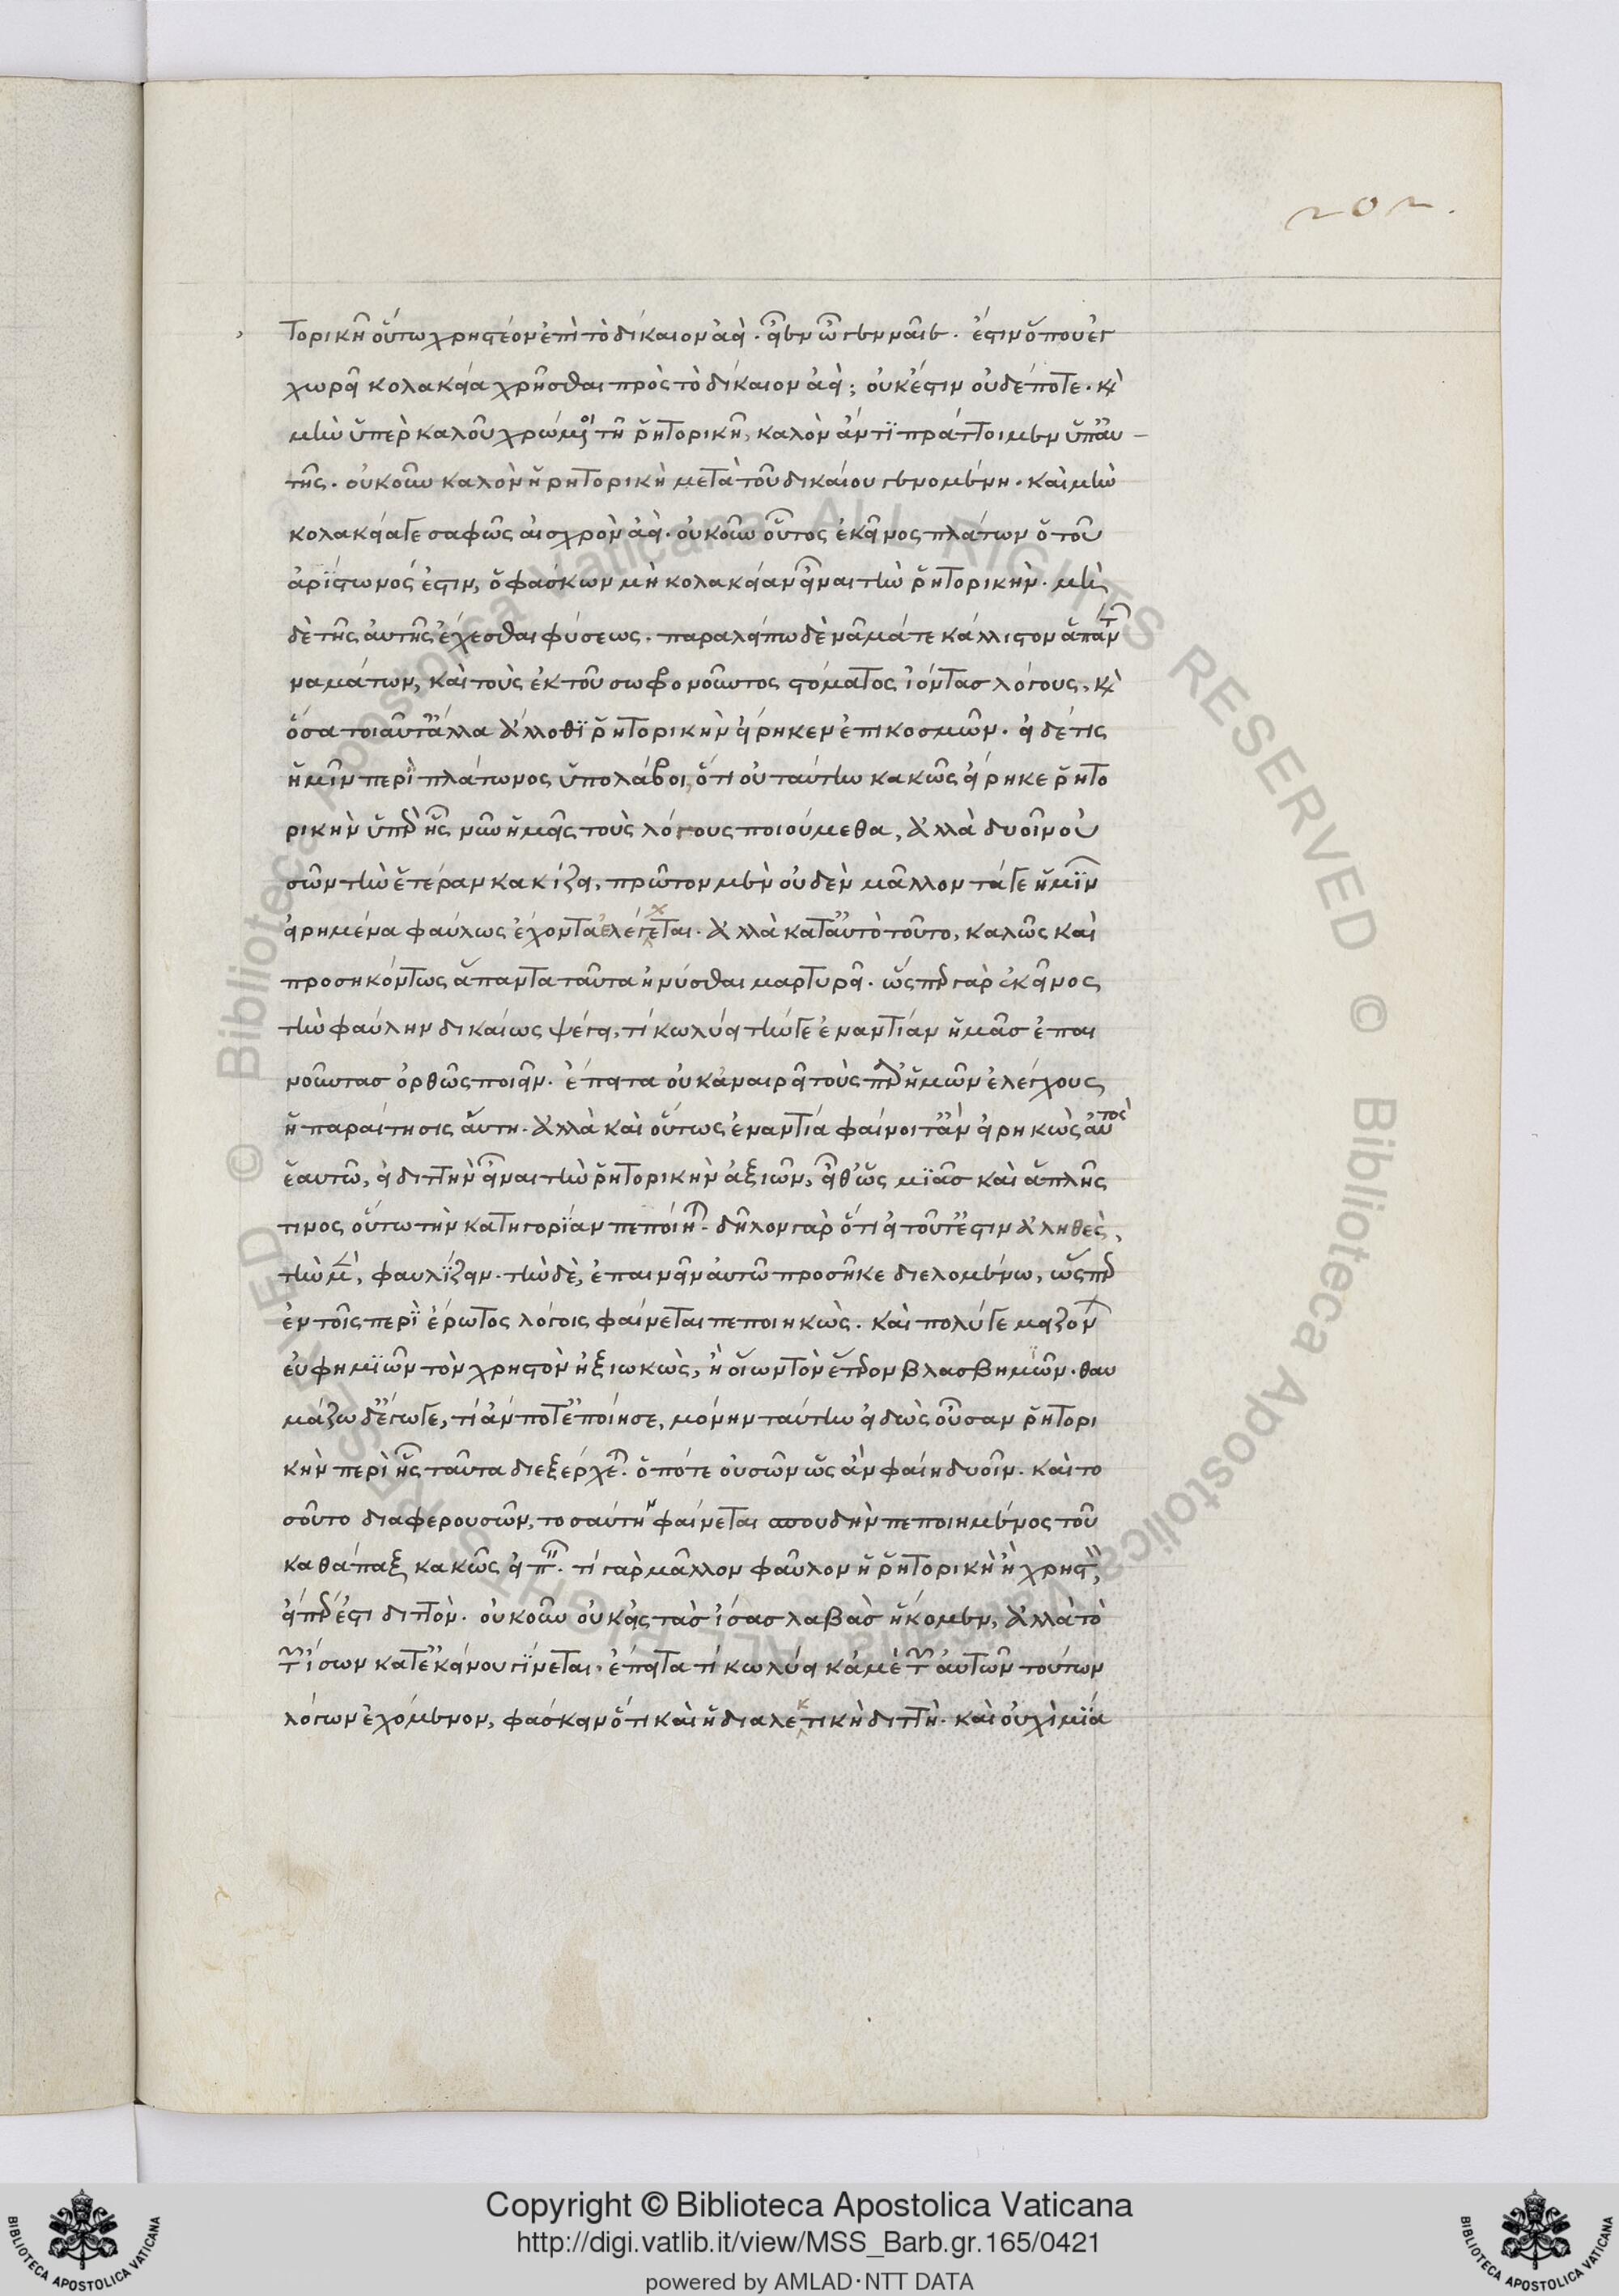 202.
τορικῆ οὕτω χρηστέον ἐπὶ τὸ δίκαιον ἀεὶ. εἶεν ὦ γενναῖε. ἔστιν ὅπου ἐγ
χωρεῖ κολακεία χρῆσθαι πρὸς τὸ δίκαιον ἀεὶ; οὐκ ἔστιν οὐδέποτε. καὶ
μὴν ὑπὲρ καλοῦ χρώμενοι τῆ ῥητορικῆ, καλὸν ἄν τι πράττοιμεν ὑπ' αὐ-
τῆς. οὐκοῦν καλὸν ἡ ρητορικὴ μετὰ τοῦ δικαίου γενομένη. καὶ μὴν
κολακεία γε σαφῶς αἰσχρὸν ἀεὶ. οὐκοῦν οὗτος ἐκεῖνος πλάτων ὁ τοῦ
ἀρίστωνός ἐστιν, ὁ φάσκων μὴ κολακείαν εἶναι τὴν ῥητορικὴν. μὴ
δὲ τῆς αὐτῆς ἔχεσθαι φύσεως. παραλείπω δὲ νᾶμά τε κάλλιστον ἁπάντων
ναμάτων, καὶ τοὺς ἐκ τοῦ σωφρονοῦντος στόματος ἰόντας λόγους, καὶ
ὅσα τοιαῦτ' ἄλλα ἄλλοθι ῥητορικὴν εἴρηκεν ἐπικοσμῶν. εἰ δέ τις
ἡμῖν περὶ πλάτωνος ὑπολάβοι, ὅτι οὐ ταύτην κακῶς εἴρηκε ῥητο
ρικὴν ὑπὲρ ἧς νῦν ἡμεῖς τοὺς λόγους ποιούμεθα, ἀλλὰ δυοῖν οὐ
σῶν τὴν ἑτέραν κακίζει, πρῶτον μὲν οὐδὲν μᾶλλον τά γε ἡμῖν
εἰρημένα φαύλως ἔχοντα ἐλέγχεται. ἀλλὰ κατ' αὐτὸ τοῦτο, καλῶς καὶ
προσηκόντως ἅπαντα ταῦτα ἠνύσθαι μαρτυρεῖ. ὥσπερ γὰρ ἐκεῖνος
τὴν φαύλην δικαίως ψέγει, τί κωλύει τήν γε ἐναντίαν ἡμᾶς ἐπαι
νοῦντας ὀρθῶς ποιεῖν. ἔπειτα οὐκ ἀναιρεῖ τοὺς παρ' ἡμῶν ἐλέγχους
ἡ παραίτησις αὕτη. ἀλλὰ καὶ οὕτως ἐναντία φαίνοιτ' ἂν εἰρηκὼς αὐτὸς
ἑαυτῶ, εἰ διττὴν εἶναι τὴν ῥητορικὴν ἀξιῶν, εἶθ' ὡς μιᾶς καὶ ἁπλῆς
τινος οὕτω τὴν κατηγορίαν πεποίηται. δῆλον γὰρ ὅτι εἰ τοῦτ' ἔστιν ἀληθὲς,
τὴν μὲν, φαυλίζειν. τὴν δὲ, ἐπαινεῖν αὐτῶ προσῆκε διελομένω, ὥσπερ
ἐν τοῖς περὶ ἔρωτος λόγοις φαίνεται πεποιηκὼς. καὶ πολύ γε μειζόνων
εὐφημιῶν τὸν χρηστὸν ἠξιωκὼς, ἢ οἵων τὸν ἕτερον βλασβημιῶν. θαυ
μάζω δ' ἔγωγε, τί ἄν ποτ' ἐποίησε, μόνην ταύτην εἰδὼς οὖσαν ῥητορι
κὴν περὶ ἧς ταῦτα διεξέρχεται. ὁπότε οὐσῶν ὡς ἂν φαίη δυοῖν. καὶ το
σοῦτο διαφερουσῶν, τοσαύτην φαίνεται σπουδὴν πεποιημένος τοῦ
καθάπαξ κακῶς εἰπεῖν. τί γὰρ μᾶλλον φαῦλον ἡ ῥητορικὴ ἢ χρηστὸν,
εἴπερ ἐστὶ διττὸν. οὐκοῦν οὐκ εἰς τὰς ἴσας λαβὰς ἥκομεν, ἀλλὰ τὸ
τῶν ἴσων κατ' ἐκείνου γίνεται. ἔπειτα τί κωλύει κἀμὲ τῶν αὐτῶν τούτων
λόγων ἐχόμενον, φάσκειν ὅτι καὶ ἡ διαλεκτικὴ διττὴ. καὶ οὐχὶ μία
Copyright © Biblioteca Apostolica Vaticana
http://digi.vatlib.it/view/MSS_Barb.gr.165/0421
powered by AMLAD·NTT DATA